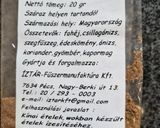 Nettó tömeg: 20 gr
Száraz helyen tartandó!
Származási hely: Magyarország
Összetevők: fahéj, csillagánizs,
szegfűszeg, édeskömény, ánizs,
koriander, gyömbér, kapormag
Gyártja és forgalmazza:
ÍZTÁR-Fűszermanufaktúra Kft.
7634 Pécs, Nagy-Berki út 13.
Tel.: 20 / 293 - 0003
e-mail: iztarkft@gmail.com
Felhasználási javaslat:
Kínai ételek, wokban készült
ételek ízesítéséhez.